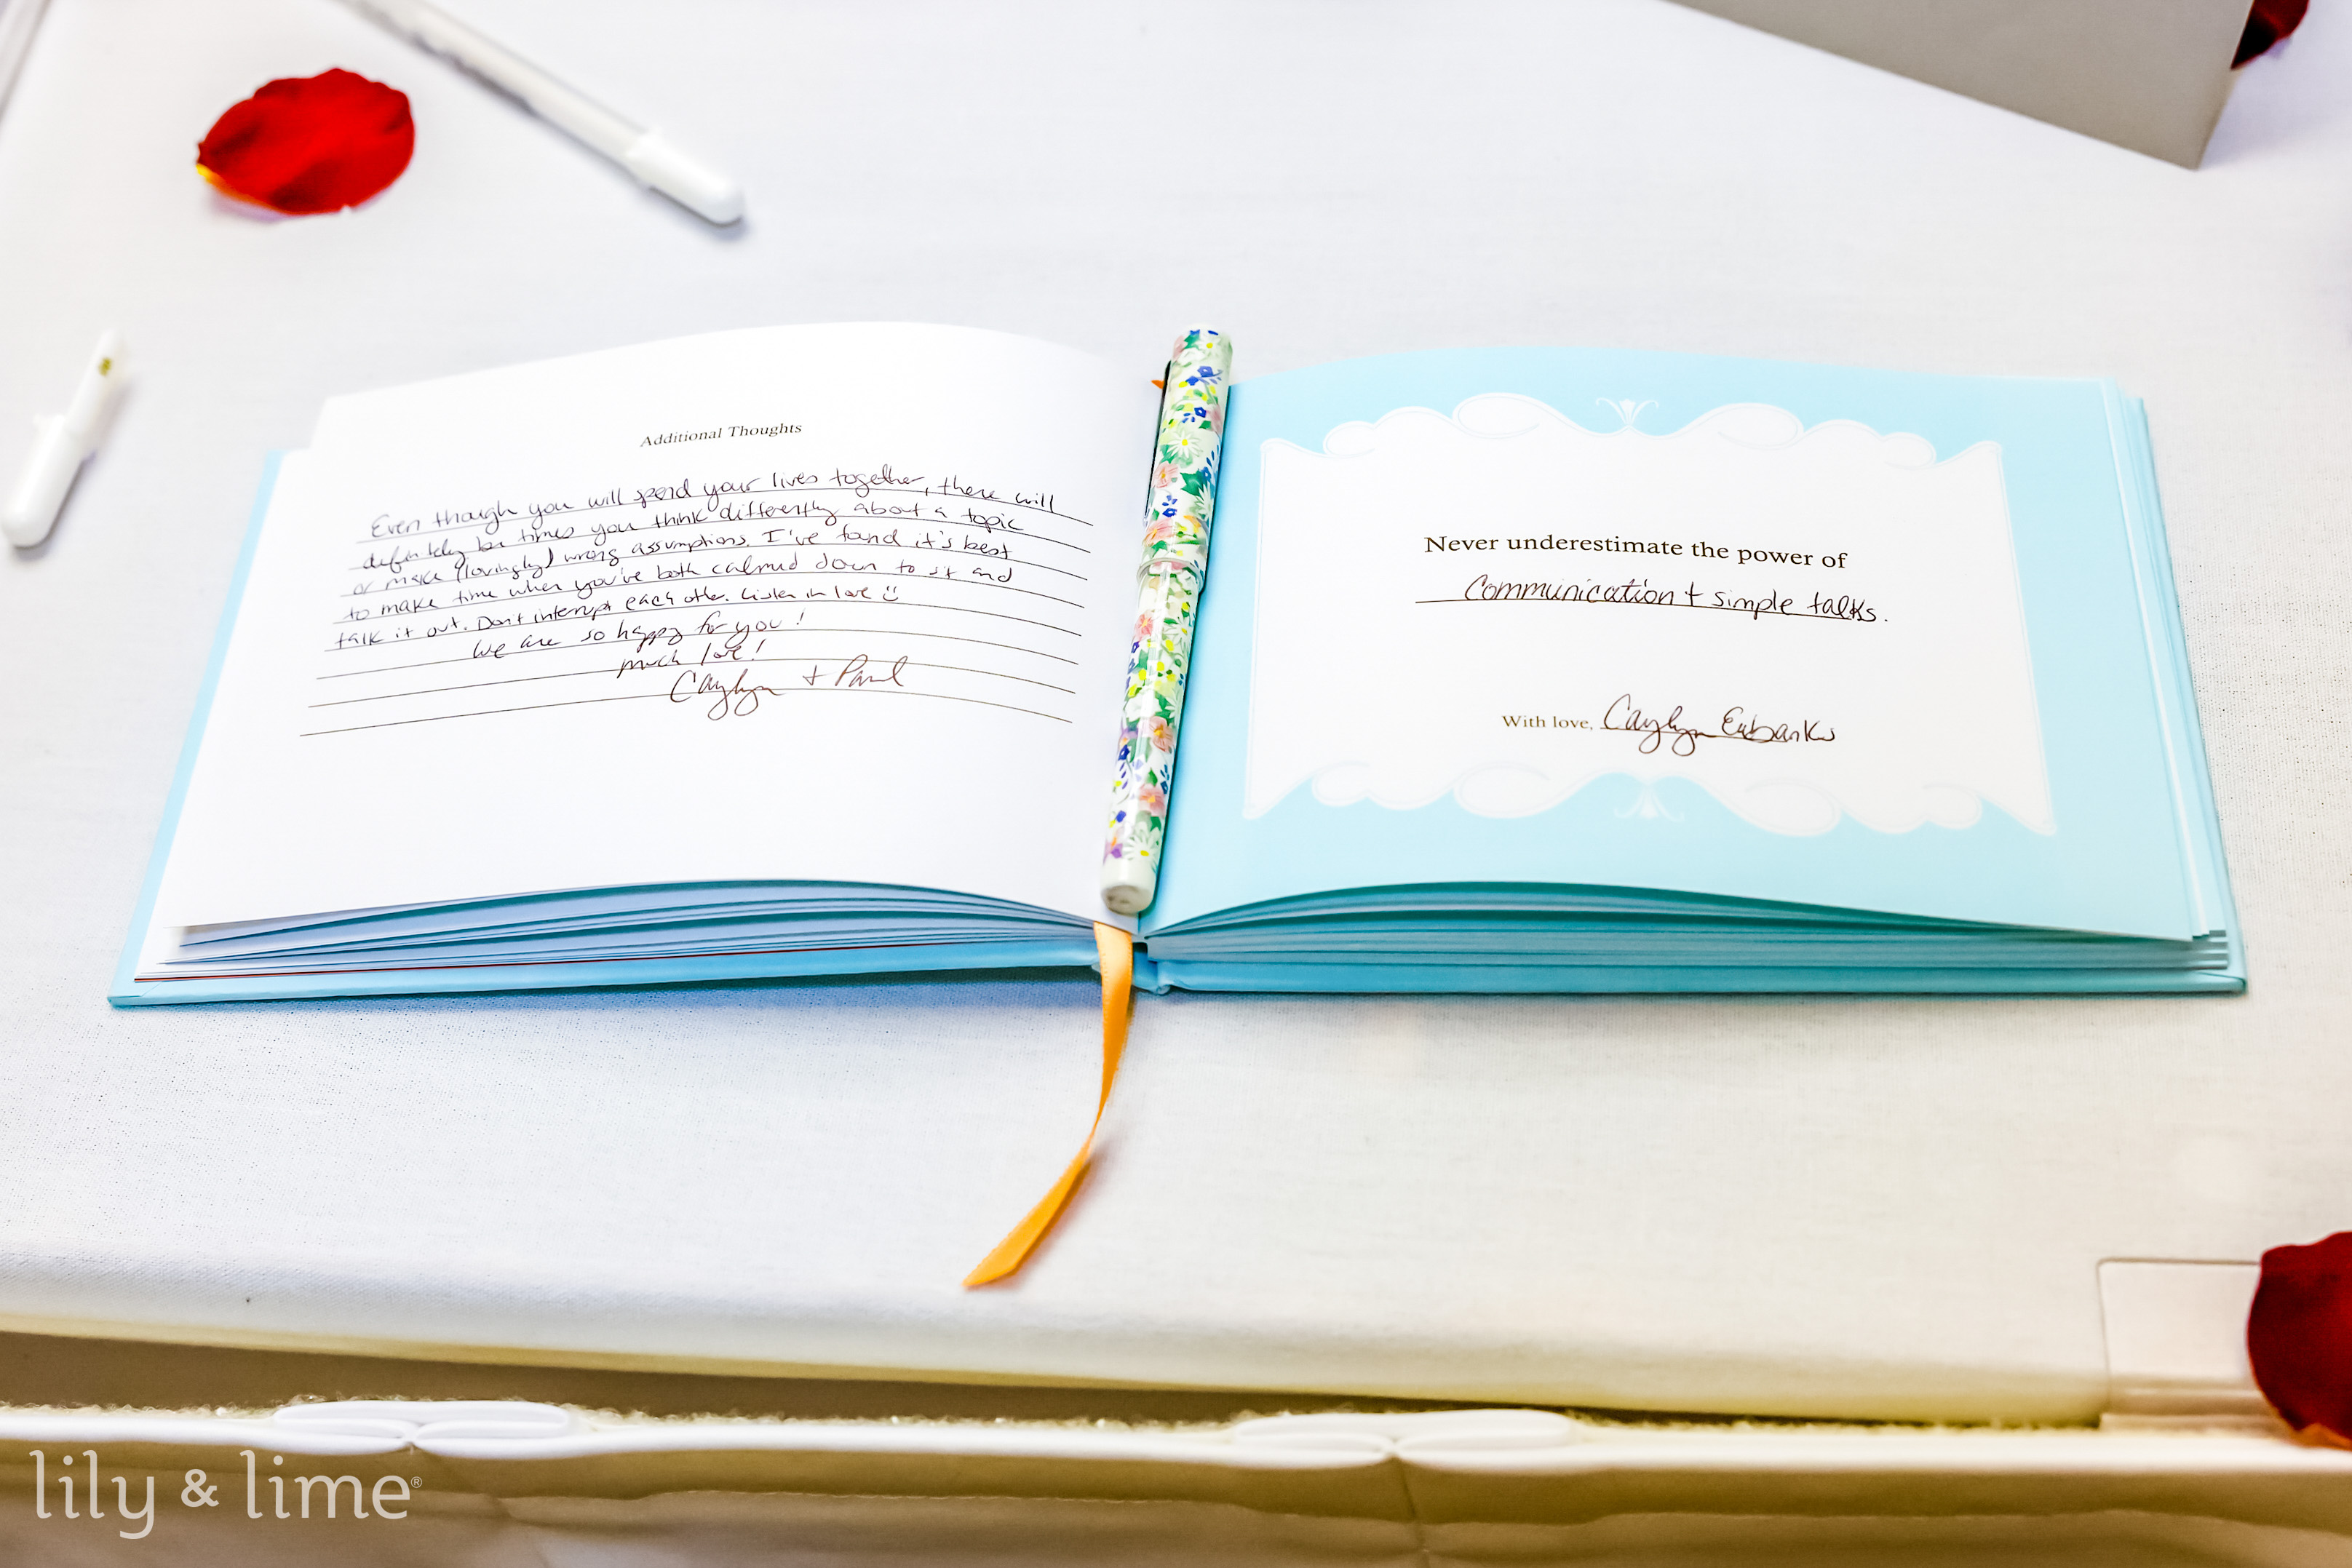 Additional Thoughts
Even though you will spend your lives together, there will
definitely be times you think differently about a topic
or make (lovingly) wrong assumptions. I've found it's best
to make time when you've both calmed down to sit and
talk it out. Don't interrupt each other. Listen in love
We are so happy for you!
much love!
Caylyn + Paul
Never underestimate the power of
Communication + simple talks.
With love, Caylyn Eubanks
lily & lime®